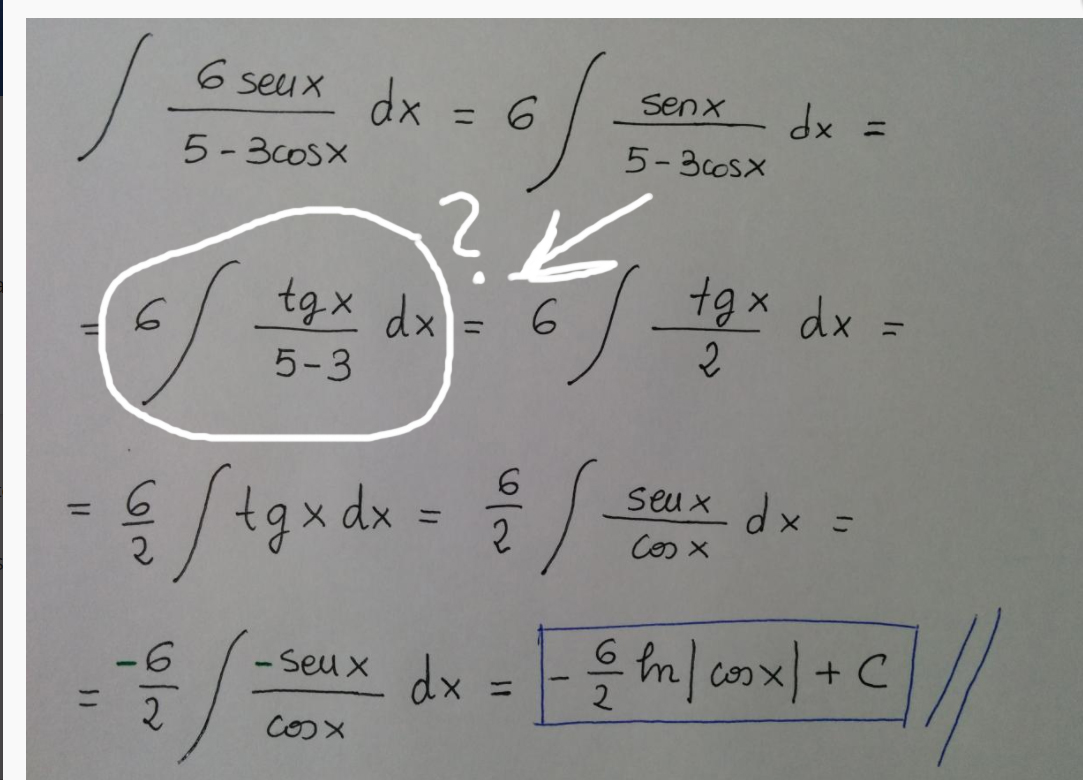 ∫ 6 senx / 5 - 3cosx dx = 6 ∫ senx / 5 - 3cosx dx =
?
= 6 ∫ tgx / 5-3 dx = 6 ∫ tgx / 2 dx =
= 6/2 ∫ tgx dx = 6/2 ∫ senx / cosx dx =
= -6/2 ∫ -senx / cosx dx = - 6/2 ln|cosx| + C //